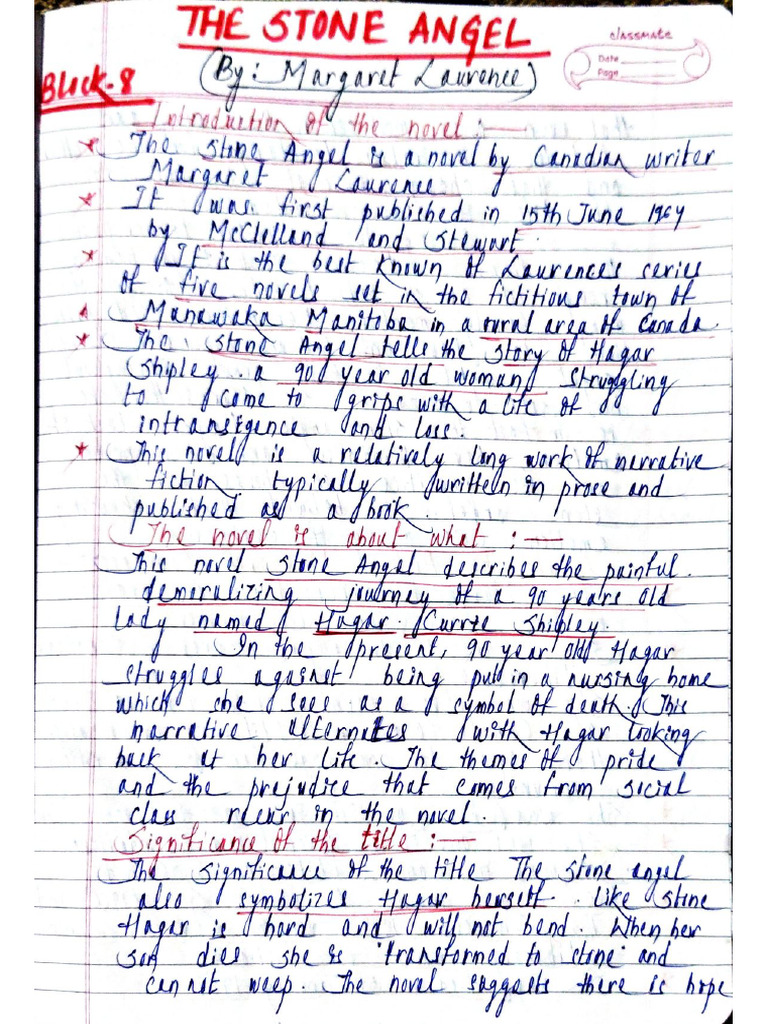 THE STONE ANGEL
classmate
Date
Page
(By: Margaret Laurence)
Block-8
Introduction of the novel :—
* The Stone Angel is a novel by Canadian writer
Margaret Laurence
* It was first published in 15th June 1964
by McClelland and Stewart.
* It is the best known of Laurence's series
of five novels set in the fictitious town of
* Manawaka Manitoba in a rural area of Canada.
* The Stone Angel tells the story of Hagar
Shipley. a 90 year old woman struggling
to come to grips with a life of
intransigence and loss.
* This novel is a relatively long work of narrative
fiction. typically written in prose and
published as a book.
The novel is about what :—
This novel Stone Angel describes the painful.
demoralizing journey of a 90 years old
lady named Hagar. Currie Shipley.
In the present, 90 year old Hagar
struggles against being put in a nursing home
which she sees as a symbol of death. This
narrative alternates with Hagar looking
back at her life. The themes of pride
and the prejudice that comes from social
class recur in the novel.
Significance of the title :—
The significance of the title The stone angel
also symbolizes Hagar herself. Like stone
Hagar is hard and will not bend. When her
son dies she is "transformed to stone" and
can not weep. The novel suggests there is hope